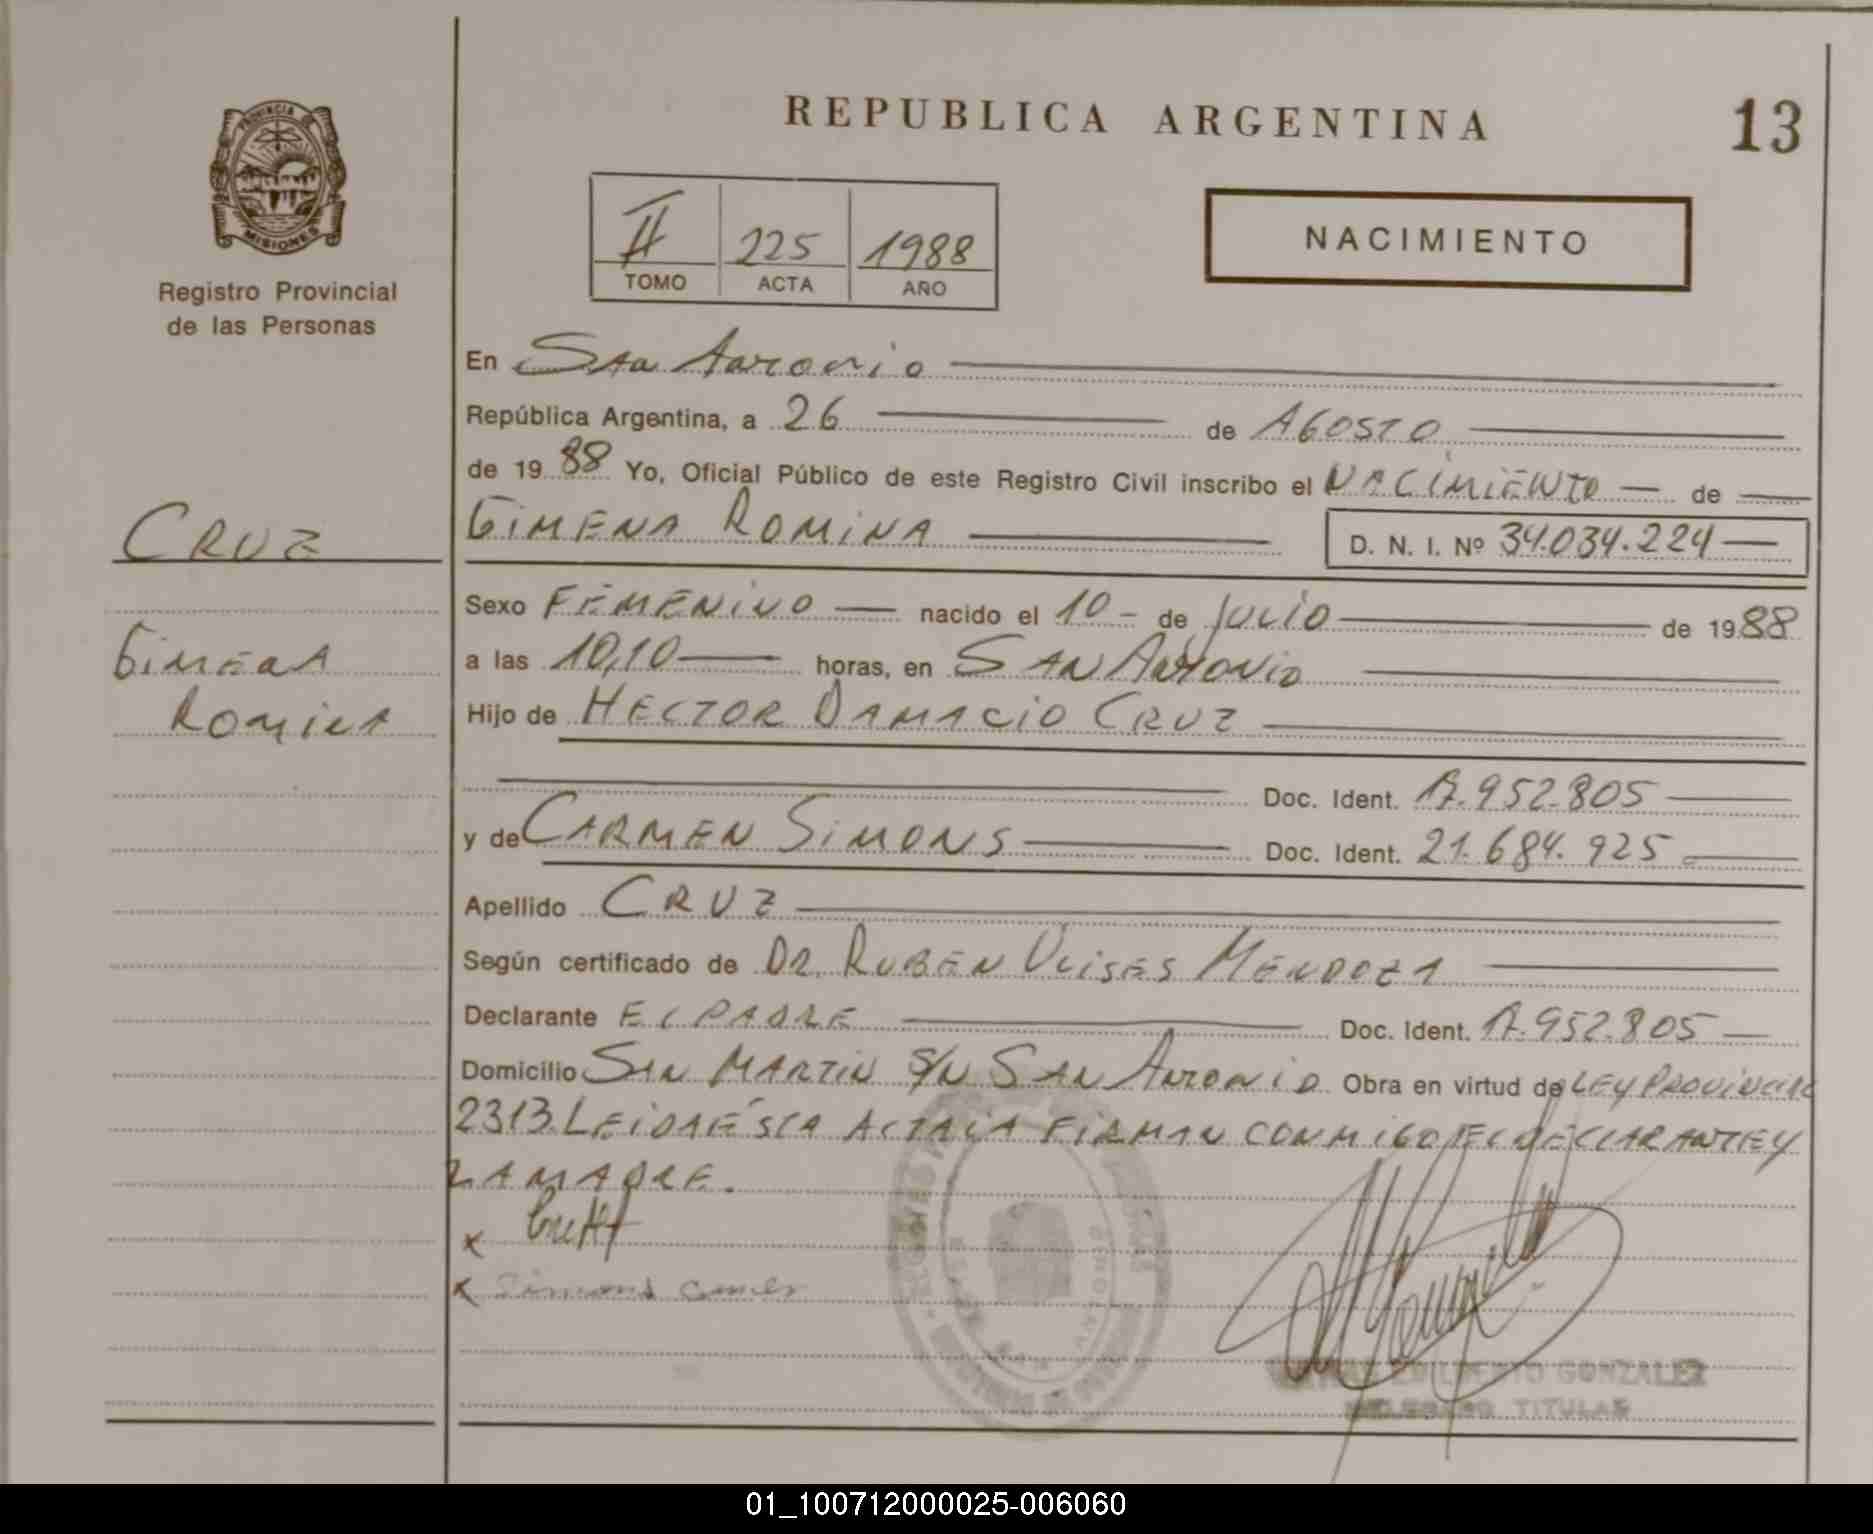 REPUBLICA ARGENTINA
13
PROVINCIA D
MISIONES
Registro Provincial
de las Personas
II 225 1988
TOMO ACTA AÑO
NACIMIENTO
En San Antonio
República Argentina, a 26 de AGOSTO
de 1988 Yo, Oficial Público de este Registro Civil inscribo el NACIMIENTO de
CRUZ
GIMENA ROMINA D. N. I. Nº 34.034.224
Sexo FEMENINO nacido el 10 de Julio de 1988
Gimena
a las 10,10 horas, en SAN ANTONIO
Romina
Hijo de HECTOR DAMACIO CRUZ
Doc. Ident. 17.952.805
y de CARMEN SIMONS Doc. Ident. 21.684.925
Apellido CRUZ
Según certificado de DR. RUBEN ULISES MENDOZA
Declarante EL PADRE Doc. Ident. 17.952.805
Domicilio SAN MARTIN S/N SAN ANTONIO Obra en virtud de LEY PROVINCIAL
2313. LEIDA ESTA ACTA LA FIRMAN CONMIGO EL DECLARANTE Y
LA MADRE.
x
x Simons
GONZALEZ
TITULAR
01_100712000025-006060